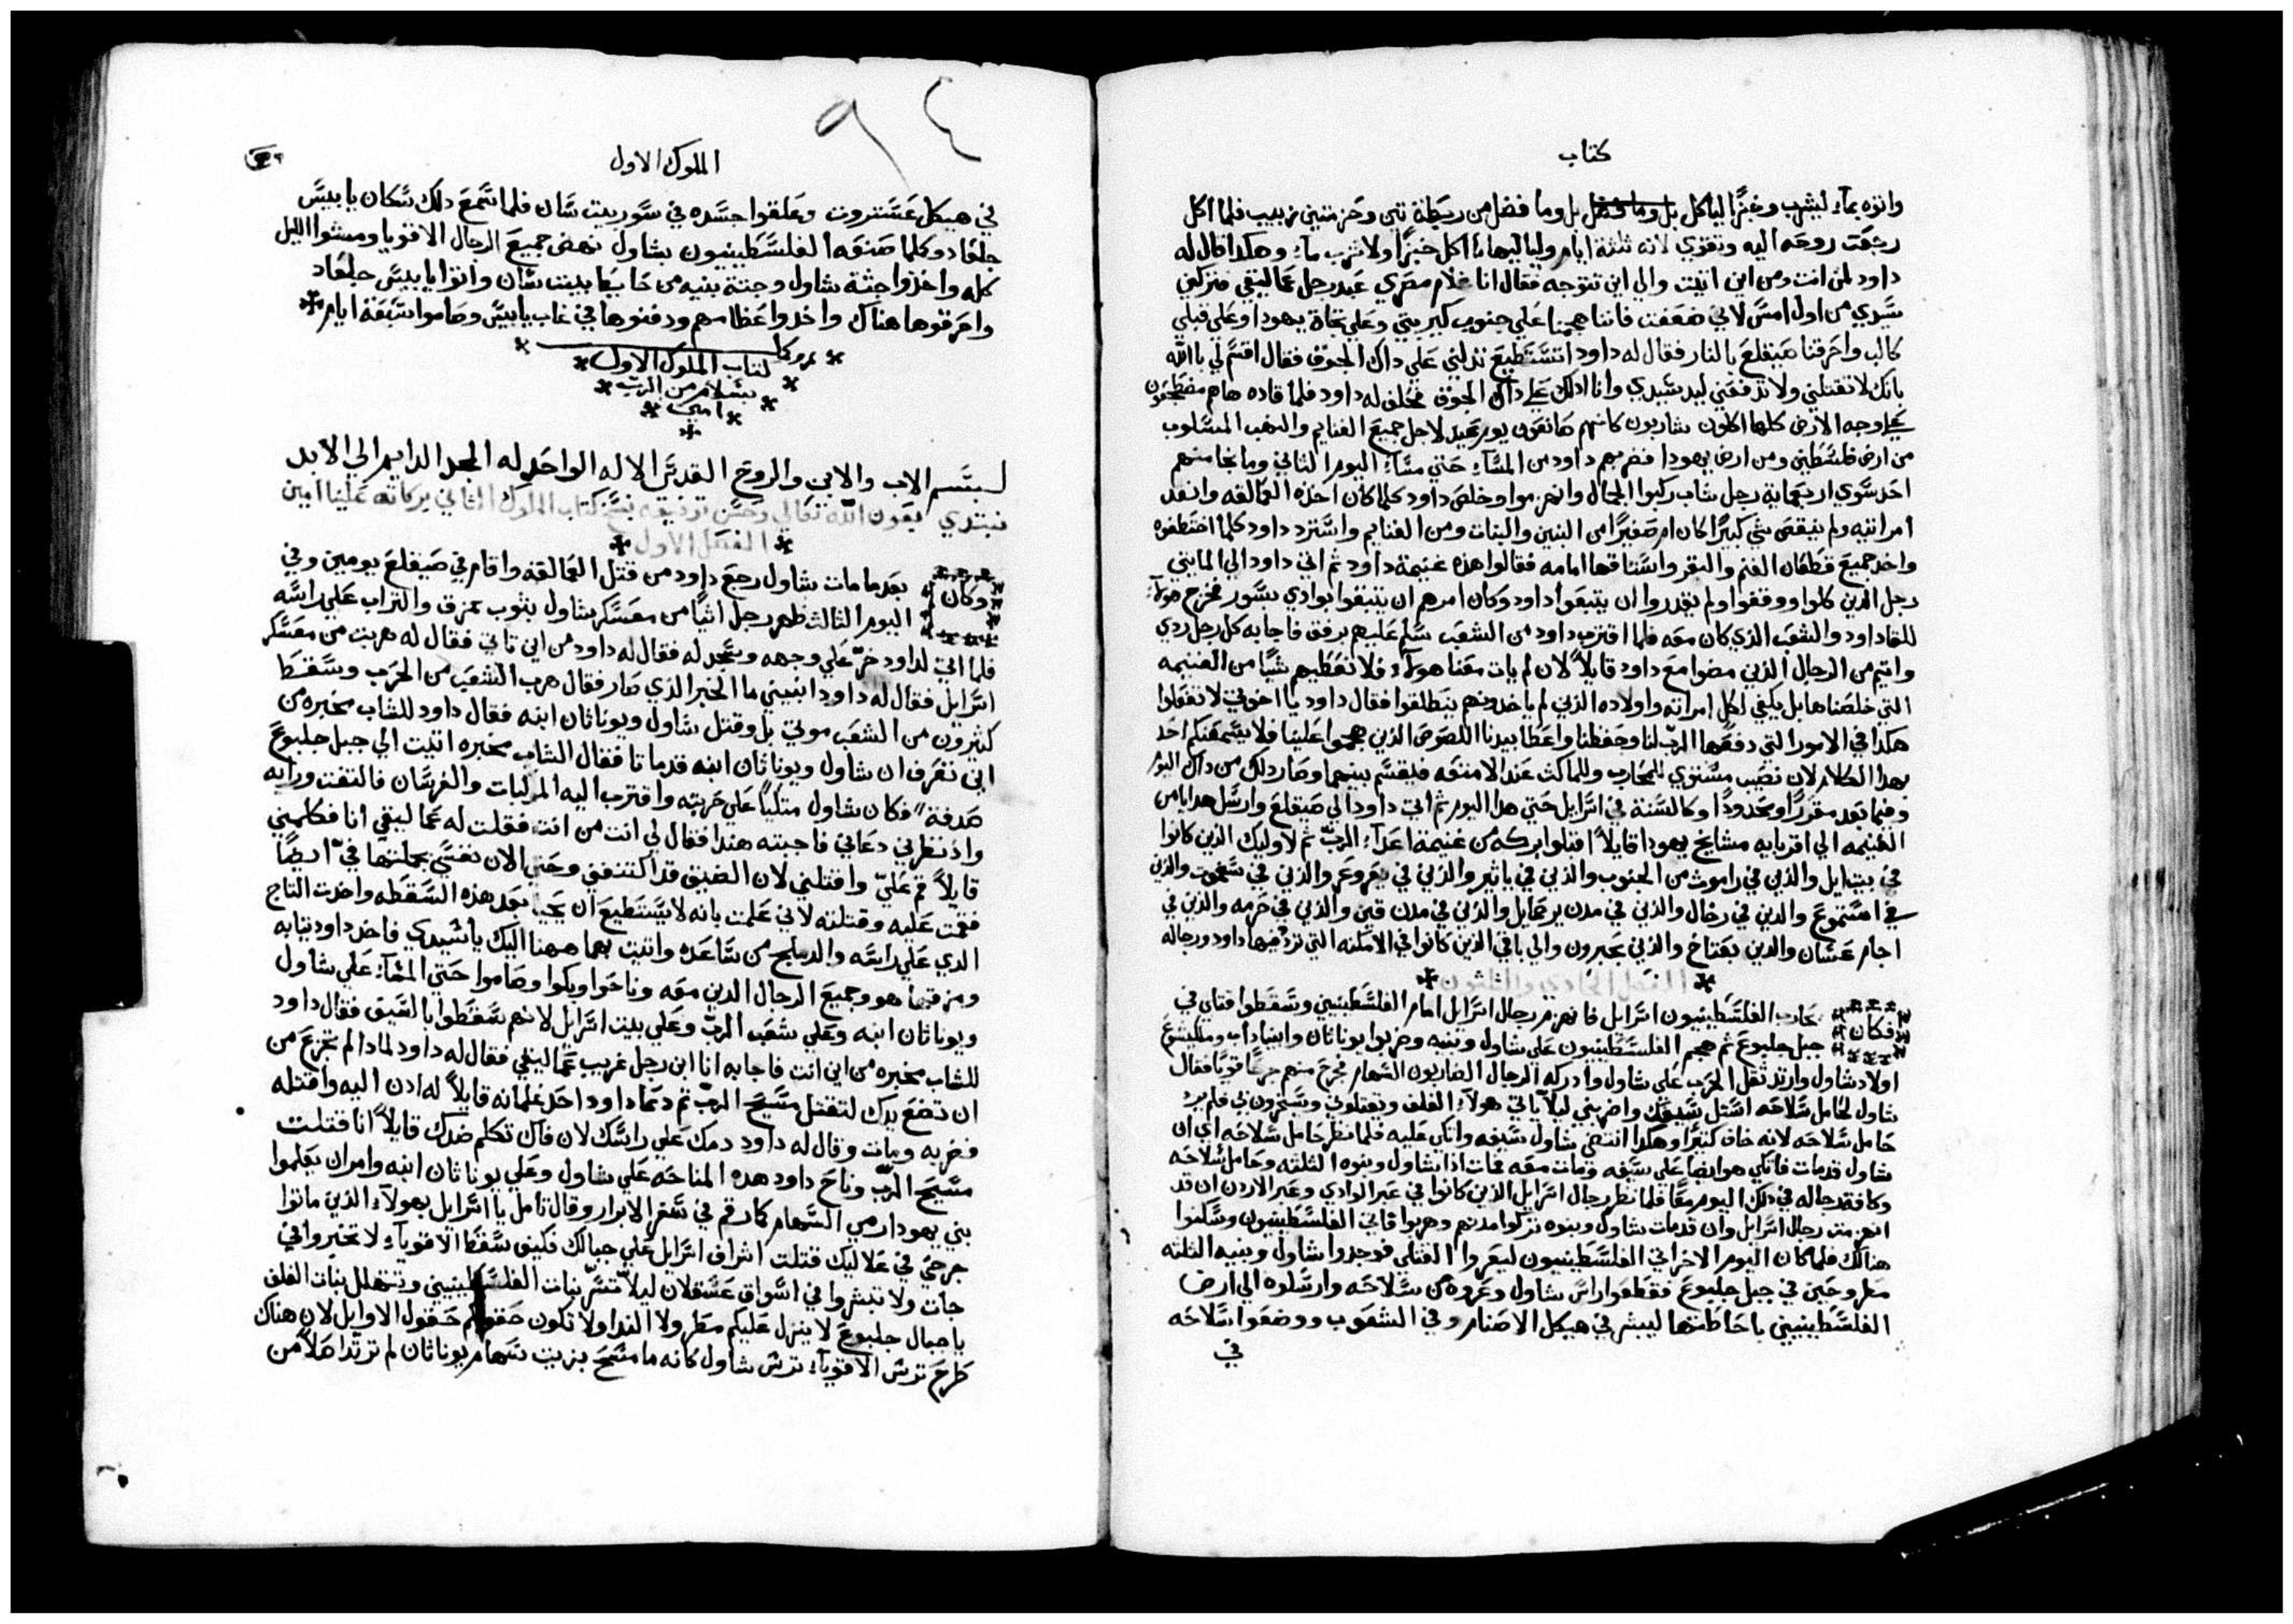 كتاب
واتوه بماء ليشرب وخبزًا لياكل بل وما فضل بل وما فضل من ربطة تين وحزمتين زبيب فلما اكل
رجعت روحه اليه وتقوي لانه ثلثة ايام ولياليها ما اكل خبزًا ولا شرب ماء وهكدا قال له
داود لمن انت ومن اين اتيت والي اين تتوجه فقال انا غلام مصري عبد رجل عماليقي فتركني
سيدي من اول امس لاني ضعفت فاننا هجمنا علي جنوب كيريتي وعلي تجاة يهودا وعلي قبلي
كالب واحرقنا صيقلغ بالنار فقال له داود اتستطيع تدلني علي داك الجوق فقال اقسم لي بالله
بانك لا تقتلني ولا تدفعني ليد سيدي وانا ادلك علي داك الجوق فحلف له داود فلما قاده هاهم مضطجعون
علي وجه الارض كلها اكلون شاربون كانهم صانعون يوم عيد لاجل جميع الغنايم والنهب المسلوب
من ارض فلسطين ومن ارض يهودا فضربهم داود من المساء حتي مساء اليوم الثاني وما نجا منهم
احد سوي اربعماية رجل شاب ركبوا الجمال وانهزموا وخلص داود كلما كان اخذه العمالقه وانقد
امراتيه ولم ينقص شي كبيرًا كان ام صغيرًا من البنين والبنات ومن الغنايم واسترد داود كلما اختطفوه
واخد جميع قطعان الغنم والبقر واستاقها امامه فقالوا هذه غنيمة داود ثم اتي داود الي المايتي
رجل الدين كلوا ووقفوا ولم يقدروا ان يتبعوا داود وكان امرهم ان يتبقوا بوادي بسور فخرج هولاء
للقا داود والشعب الذي كان معه فلما اقترب داود من الشعب سلم عليهم برفق فاجابه كل رجل ردي
واثيم من الرجال الذين مضوا مع داود قايلاً لان لم يات معنا هولاء فلا نعطيهم شيًا من الغنيمه
التي خلصناها بل يكفي لكل امراته واولاده الذين لم ياخدونهم ينطلقوا فقال داود يا اخوتي لا تفعلوا
هكدا في الامور التي دفعها الرب لنا وحفظنا واعطا بيدنا اللصوص الذين هجموا علينا فلا يسمعنكم احد
بهدا الكلام لان نصيب مستوي للمحارب وللماكث عند الامتعه فليقسم بينهما وصار دلك من داك اليوم
وفيما بعد مقررًا ومحدودًا وكالسنة في اسرايل حتي هدا اليوم ثم اتي داود الي صيقلغ وارسل هدايا من
الغنيمه الي اقربايه مشايخ يهودا قايلاً اقبلوا بركه من غنيمة اعداء الرب ثم لاوليك الذين كانوا
في بيت ايل والذين في راموث من الجنوب والذين في ياثير والذين في يعروعر والذين في سفموت والذين
في استموع والدين في رخال والذين في مدن يرحمايل والذين في مدن قين والذين في حرمه والذين في
اجام عشان والدين بعتاخ والذين بحبرون والي باقي الذين كانوا في الامكنه التي تردد فيها داود ورجاله
الفصل الحادي والثلثون
فكان محارب الفلسطينيون اسرايل فانهزم رجال اسرايل امام الفلسطينيين وسقطوا قتلي في
جبل جلبوع ثم هجم الفلسطينيون علي شاول وبنيه وضربوا يوناثان وابيناداب وملكيشوع
اولاد شاول وارتد ثقل الحرب علي شاول وادركه الرجال الضاربون السهام فجرح منهم جرحًا قويًا فقال
شاول لحامل سلاحه استل سيفك واضربني ليلا ياتي هولاء الغلف ويقتلوني ويسخرون بي فلم يرد
حامل سلاحه لانه خاف كثيرًا وهكدا انتضي شاول سيفه واتكي عليه فلما نظر حامل سلاحه اي ان
شاول قد مات فاتكي هو ايضًا علي سيفه ومات معه فمات اذا شاول وبنوه الثلثه وحامل سلاحه
وكافة رجاله في ذلك اليوم معًا فلما نظر رجال اسرايل الذين كانوا في عبر الوادي وعبر الاردن ان قد
انهزمت رجال اسرايل وان قد مات شاول وبنوه تركوا مدنهم وهربوا فاتي الفلسطينيون وسكنوا
هنالك فلما كان اليوم الاخر اتي الفلسطينيون ليعروا القتلي فوجدوا شاول وبنيه الثلثه
مطروحين في جبل جلبوع فقطعوا راس شاول وعروه من سلاحه وارسلوه الي ارض
الفلسطينيين باحاطتها ليبشر في هيكل الاصنام وفي الشعوب ووضعوا سلاحه
في
٩٤
الملوك الاول
في هيكل عستروت وعلقوا جسده في سور بيت شان فلما سمع دلك سكان يابيس
جلعاد وكلما صنعه الفلسطينيون بشاول نهض جميع الرجال الاقويا ومشوا الليل
كله واخذوا جثة شاول وجثة بنيه من حايط بيت شان واتوا يابيس جلعاد
واحرقوها هناك واخدوا عظامهم ودفنوها في غاب يابيس وصاموا سبعة ايام
كتاب الملوك الاول
بسلام من الرب
امين
بسم الاب والابن والروح القدس الاله الواحد له المجد الدايم الي الابد
نبتدي بعون الله تعالي وحسن توفيقه بنسخ كتاب الملوك الثاني بركاته علينا امين
الفصل الاول
وكان بعد ما مات شاول رجع داود من قتل العمالقه واقام في صيقلغ يومين وفي
اليوم الثالث ظهر رجل اتيًا من معسكر شاول بثوب ممزق والتراب علي راسه
فلما اتي لداود خر علي وجهه وسجد له فقال له داود من اين تاتي فقال له هربت من معسكر
اسرايل فقال له داود انبيني ما الخبر الذي صار فقال هرب الشعب من الحرب وسقط
كثيرون من الشعب موتي بل وقتل شاول ويوناثان ابنه فقال داود للشاب مخبره من
اين تعرف ان شاول ويوناثان ابنه قد ماتا فقال الشاب مخبره اتيت الي جبل جلبوع
صدفة فكان شاول متكيًا علي حربته واقترب اليه المركبات والفرسان فالتفت ورايه
واذ نظرني دعاني فاجبته هندا فقال لي انت من انت فقلت له عماليقي انا فكلمني
قايلاً قم علي واقتلني لان الضيق قد اكتنفني وحتي الان نفسي بجملتها في ايضًا
فقمت عليه وقتلته لاني علمت بانه لا يستطيع ان يحيا بعد هذه السقطه واخدت التاج
الدي علي راسه والدملج من ساعده واتيت بهما ههنا اليك يا سيدي فاخد داود ثيابه
ومزقها هو وجميع الرجال الدين معه وناحوا وبكوا وصاموا حتي المساء علي شاول
ويوناثان ابنه وعلي شعب الرب وعلي بيت اسرايل لانهم سقطوا بالسيف فقال داود
للشاب مخبره من اين انت فاجابه انا ابن رجل غريب عماليقي فقال له داود لمادا لم تجزع من
ان تضع يدك لتقتل مسيح الرب ثم دعا داود احد غلمانه قايلاً له ادن اليه واقتله
فضربه ومات وقال له داود دمك علي راسك لان فاك تكلم ضدك قايلاً انا قتلت
مسيح الرب وناح داود هده المناحه علي شاول وعلي يوناثان ابنه وامر ان يعلموا
بني يهودا رمي السهام كما رقم في سفر الابرار وقال تامل يا اسرايل بهولاء الذين ماتوا
جرحي في علاليك قتلت اشراف اسرايل علي جبالك فكيف سقط الاقوياء لا تخبروا في
جات ولا تبشروا في اسواق عسقلان ليلا تسر بنات الفلسطينيين وتتهلل بنات الغلف
يا جبال جلبوع لا ينزل عليكم مطر ولا الندا ولا تكون حقولكم حقول الاوايل لان هناك
طرح ترس الاقوياء ترس شاول كانه ما مسح بزيت سهام يوناثان لم ترتد اصلاً من